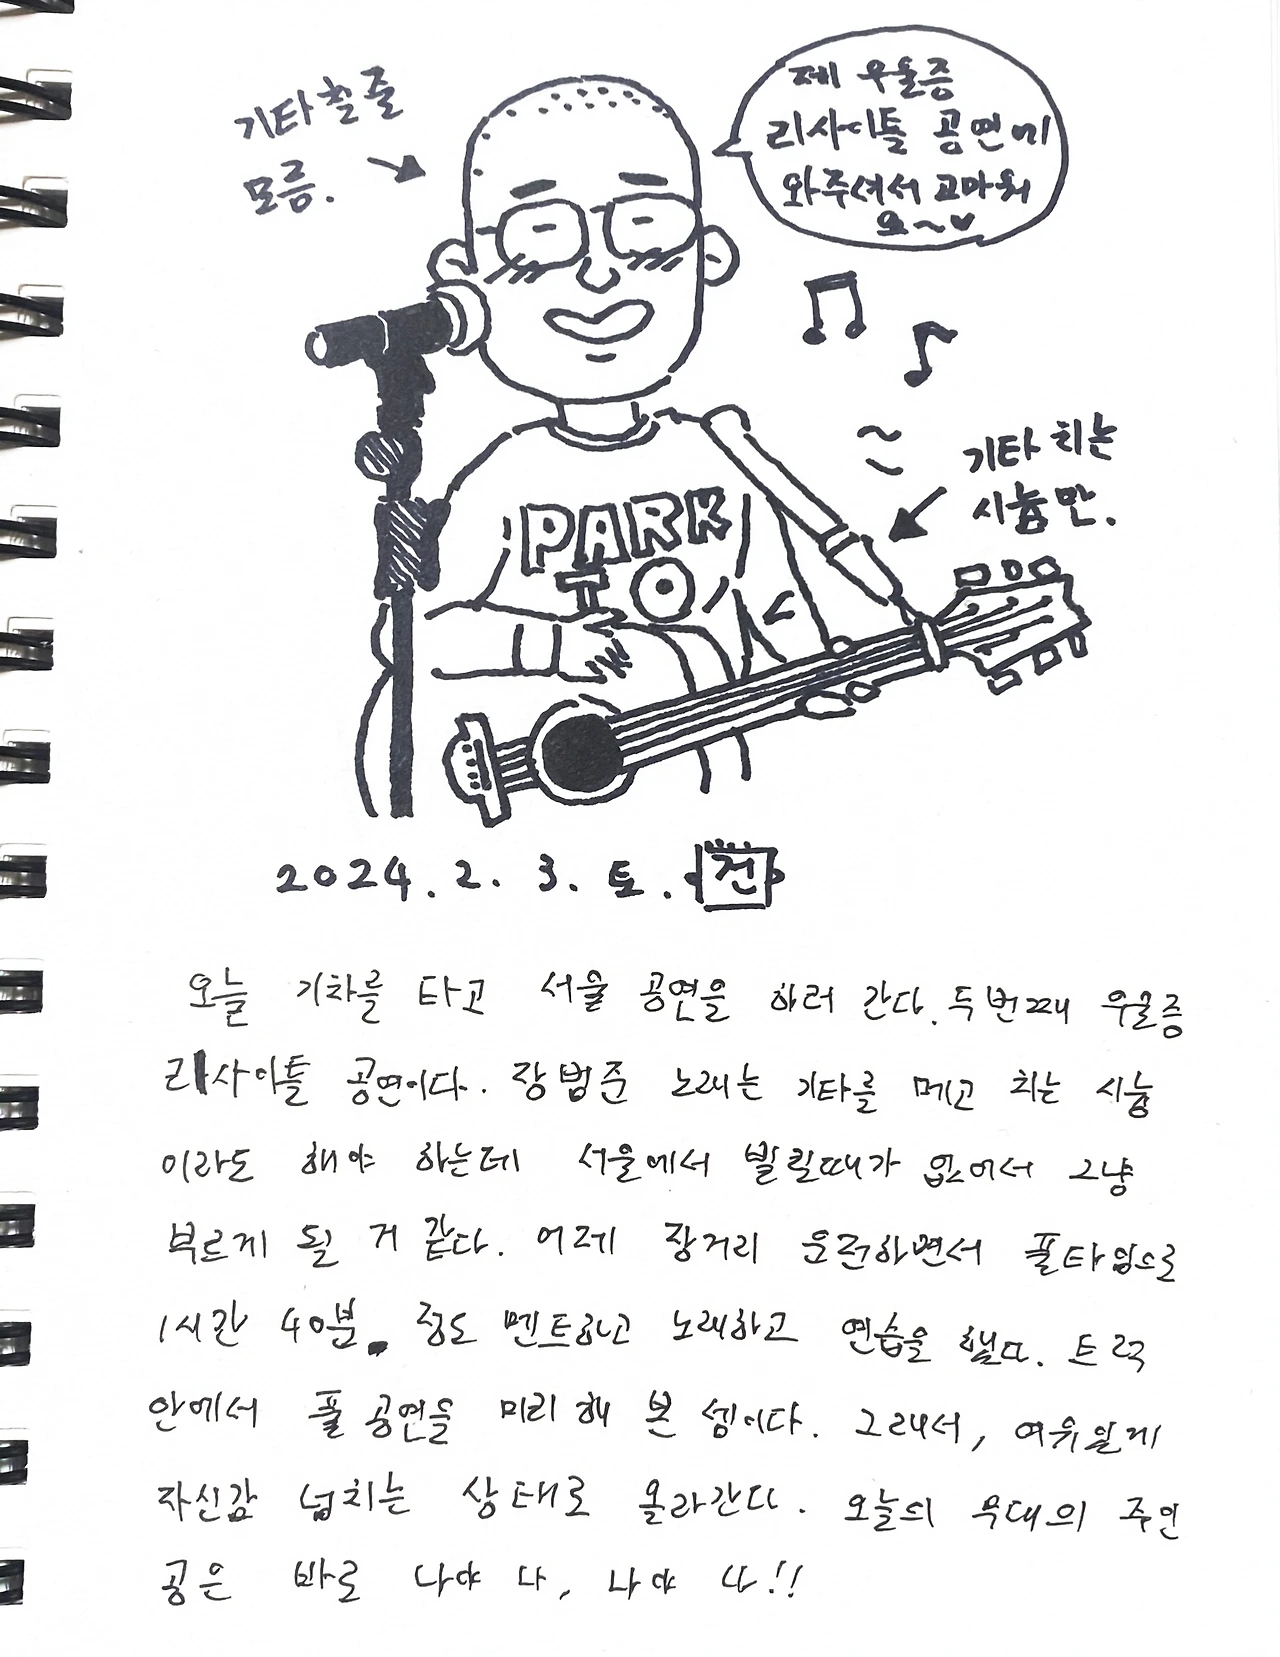 기타칠줄
모름.
제 우울증
리사이틀 공연에
와주셔서 고마워
요~♥
기타 치는
시늉만.
PARK
TO
2024. 2. 3. 토. 건
오늘 기차를 타고 서울 공연을 하러 간다. 두번째 우울증
리사이틀 공연이다. 장범준 노래는 기타를 메고 치는 시늉
이라도 해야 하는데 서울에서 빌릴때가 없어서 그냥
부르게 될 거 같다. 어제 장거리 운전하면서 풀타임으로
1시간 40분. 정도 멘트하고 노래하고 연습을 했다. 트럭
안에서 풀 공연을 미리 해 본 셈이다. 그래서, 여유있게
자신감 넘치는 상태로 올라간다. 오늘의 무대의 주인
공은 바로 나야 나, 나야 나!!